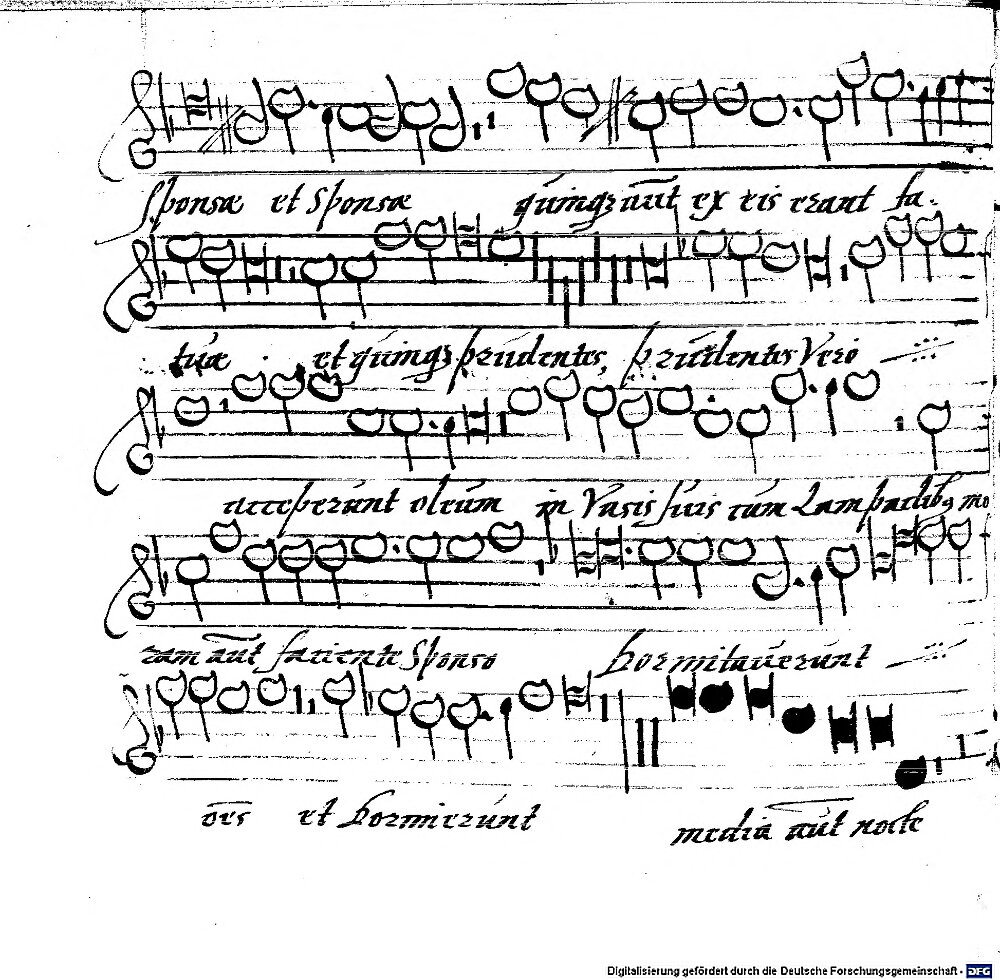 Sponsæ et Sponsæ quinqꝫ aūt ex eis erant fa-
tuæ et quinqꝫ prudentes, prudentes Vero
acceperunt oleum in Vasis suis cum Lampadibꝰ mo
ram aūt faciente Sponso dormitaverunt
oēs et dormierunt media aūt nocte
Digitalisierung gefördert durch die Deutsche Forschungsgemeinschaft - DFG